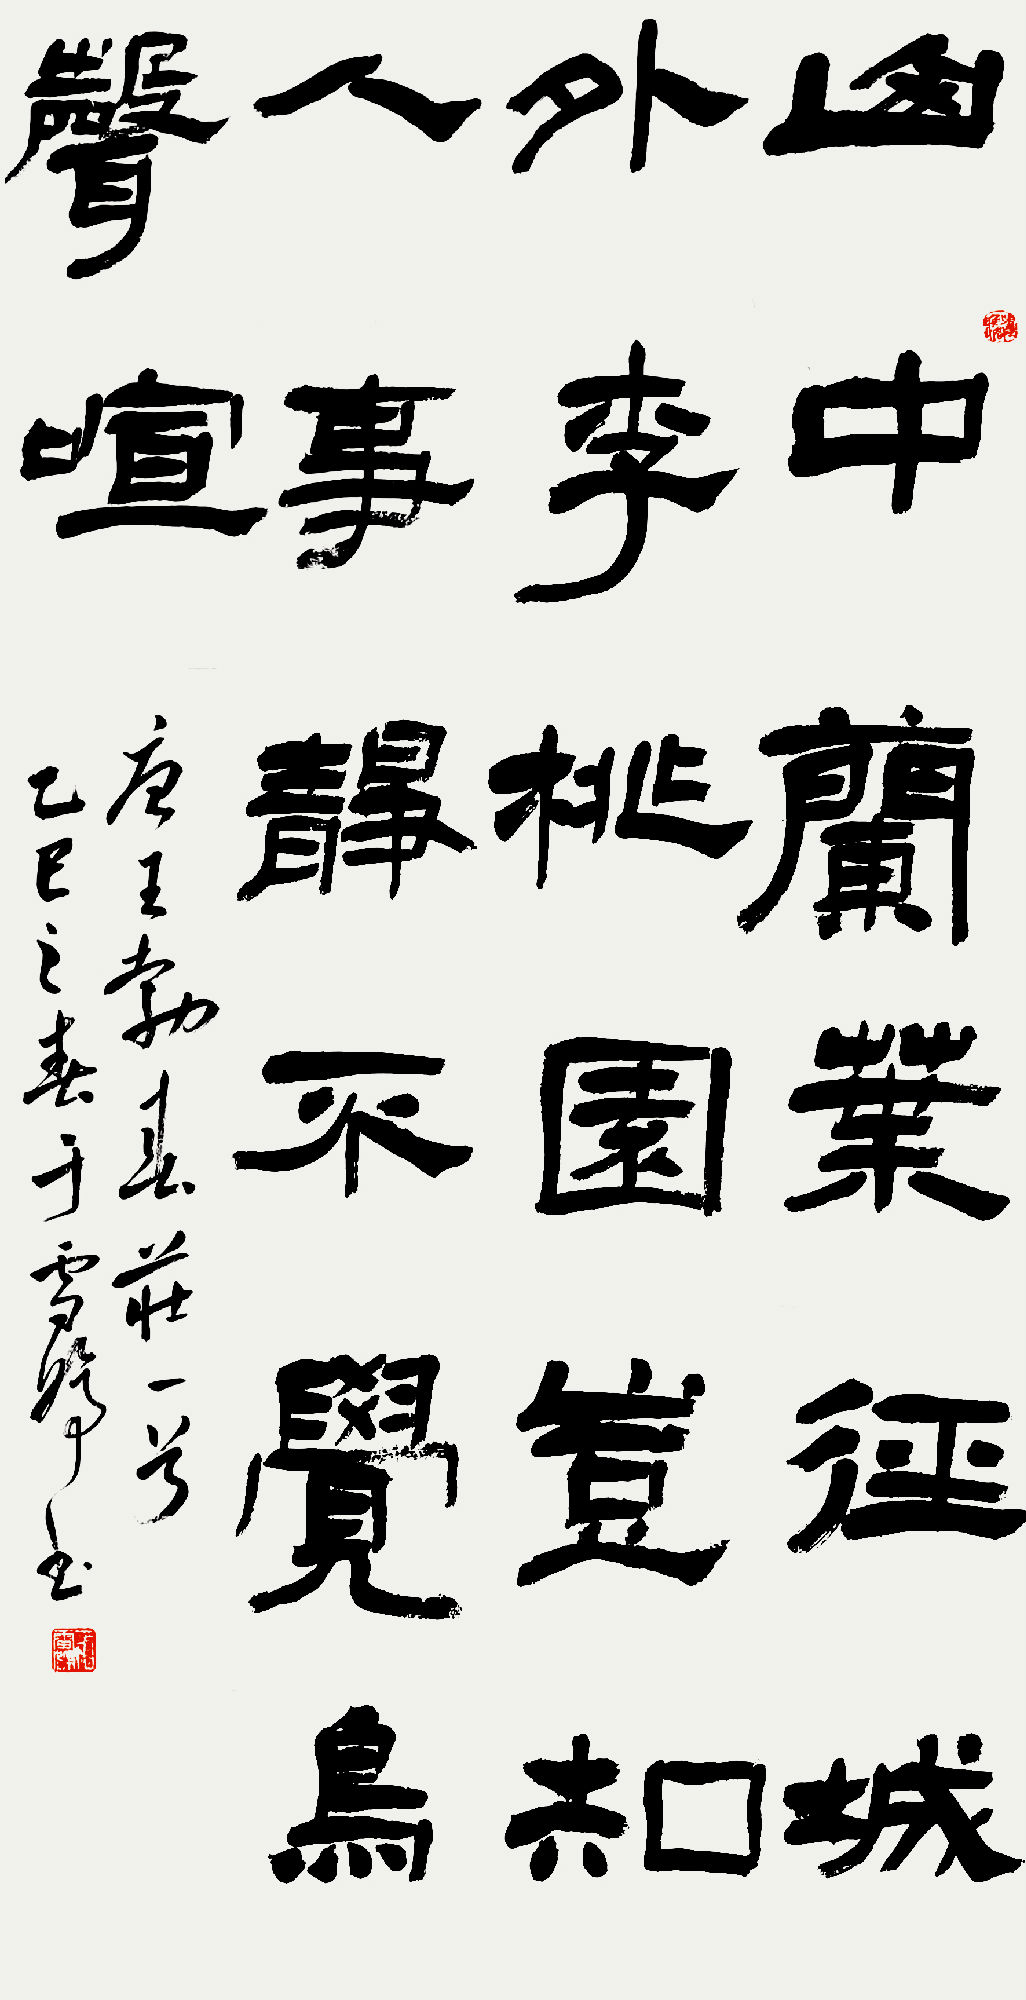 山中蘭葉徑城
外李桃園豈知
人事靜不覺鳥
聲喧
唐王勃春莊一首
乙巳之春于雪书